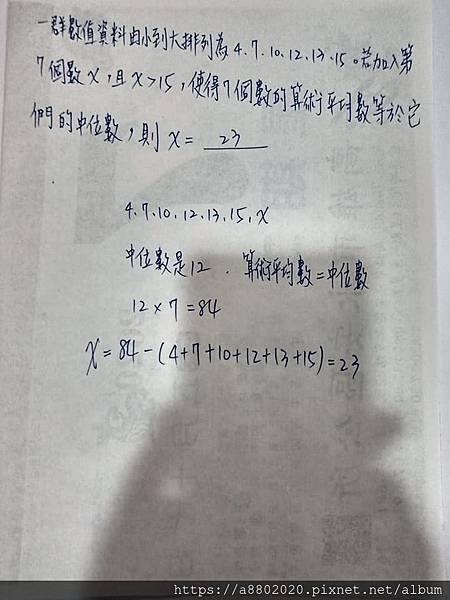 一群數值資料由小到大排列為4.7.10.12.13.15。若加入第
7個數x,且x>15,使得7個數的算術平均數等於它
們的中位數,則x= 23
4.7.10.12.13.15.x
中位數是12.算術平均數=中位數
12×7=84
x=84-(4+7+10+12+13+15)=23
https://a8802020.pixnet.net/album